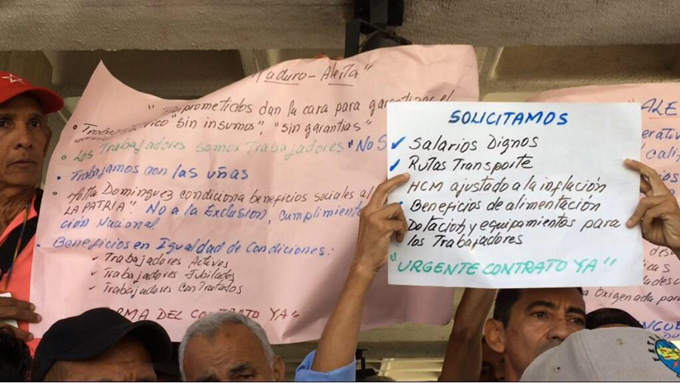 Maduro - Alerta"
dan la cara para garantizar el
"sin insumos", "sin garantías"
Los Trabajadores somos Trabajadores "NO S
Trabajamos con las uñas
Dominguez condiciona beneficios sociales al
LA PATRIA". No a la Exclusión, Cumplimiento
ción Nacional
Beneficios en Igualdad de Condiciones:
Trabajadores Activos
Trabajadores Jubilados
Trabajadores Contratados
RMA DEL CONTRATO YA"
SOLICITAMOS
✓ Salarios Dignos
✓ Rutas Transporte
HCM ajustado a la inflación
Beneficios de alimentación
Dotación y equipamientos para
los Trabajadores
"URGENTE CONTRATO YA"
"ALE